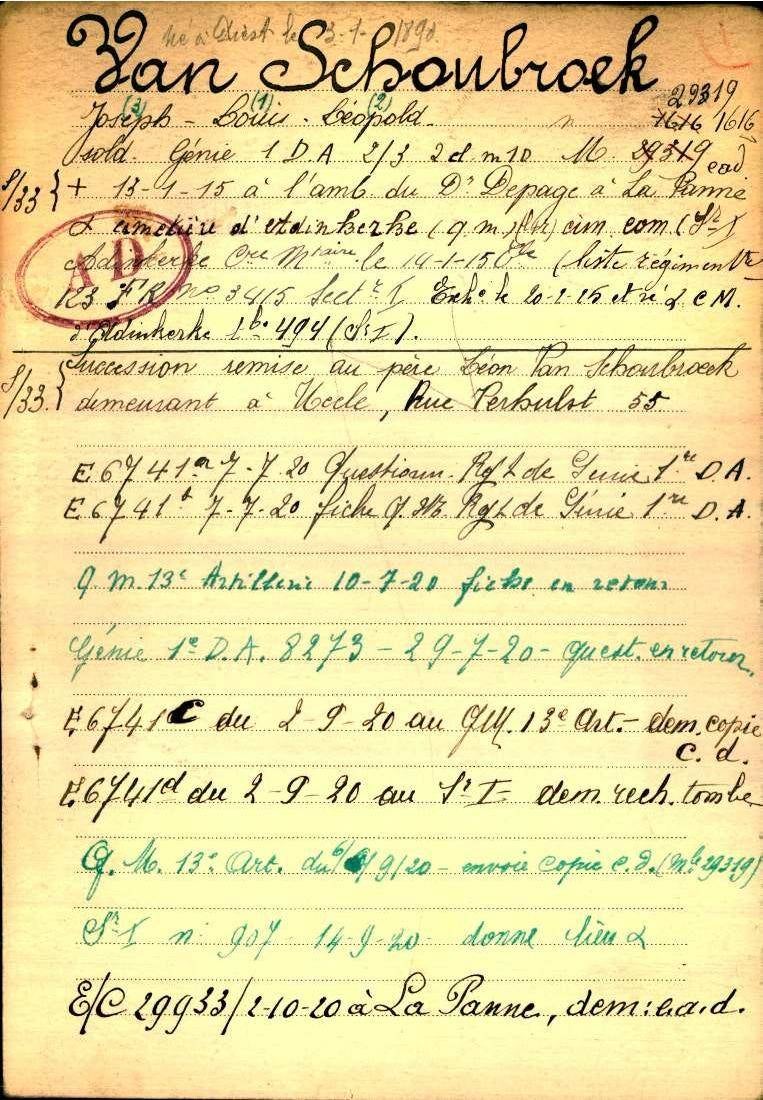 né à Diest le 3-1-1890.
Van Schoubroek
29319
(3) (1) (2)
Joseph - Louis - Léopold. n 1616 1616
sold. Génie 1 D A 2/3 2d m 10 M. 29319 ead
S/33 { + 13-1-15 à l'amb. du Dr Depage à La Panne
cimetière d'Adinkerke (q m) cim com (Sr I
Adinkerke Cre Mtaire le 14-1-15 (liste régiment re
A D
123 F R no 3415 Sectr I Exhé le 20-1-15 et ré C M.
d'Adinkerke 494 (Sr I).
S/33. { Succession remise au père Léon Van Schoubroeck
demeurant à Uccle, Rue Verhulst 55
E 6741 a 7-7-20 Questionn. Rgt de Génie 1re D.A.
E 6741 b 7-7-20 fiche Rgt de Génie 1re D.A.
Q. M. 13e Artillerie 10-7-20 fiche en retour
Génie 1e D.A. 8273 - 29-7-20 - quest. en retour.
E.6741 C du 2-9-20 au QM. 13e Art. - dem. copie
c. d.
E.6741d du 2-9-20 au Sr I dem. rech. tombe
Q. M. 13e Art. du 9/20 - envoie copie c.d. (Mle 29319)
Sr I n 907 14-9-20 donne lieu
E/C 29933/2-10-20 à La Panne, dem: e.a.d.